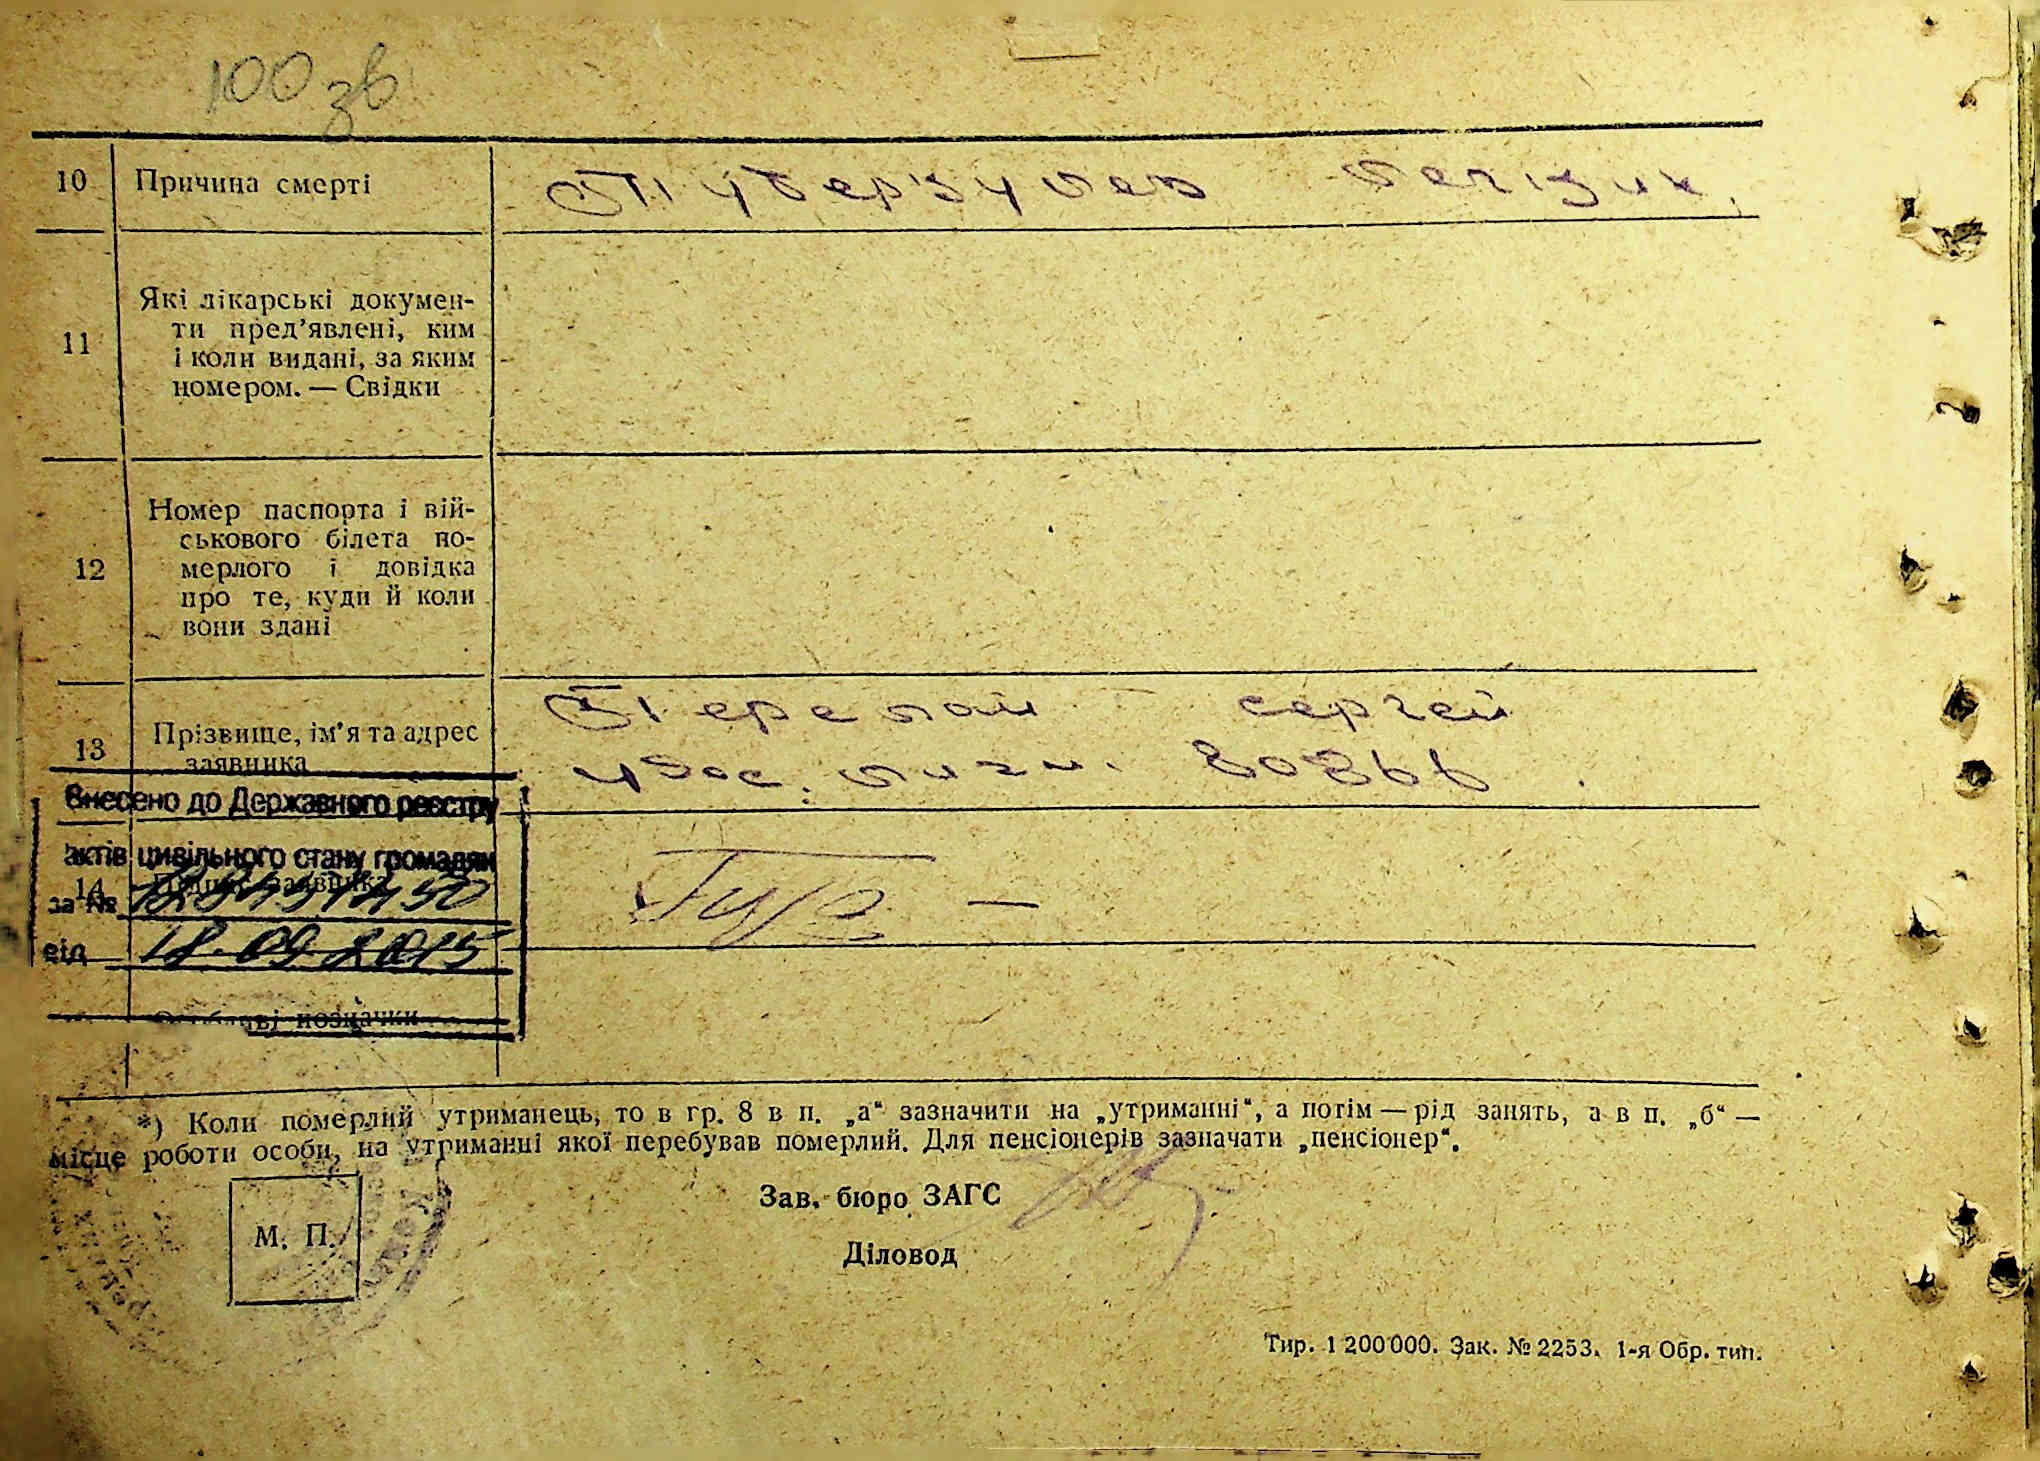 100 зв
10 Причина смерті Туберкульоз легких
11 Які лікарські докумен-
ти пред'явлені, ким
і коли видані, за яким
номером. — Свідки
12 Номер паспорта і вій-
ськового білета по-
мерлого і довідка
про те, куди й коли
вони здані
сергей
13 Прізвище, ім'я та адрес
заявника
Внесено до Державного реєстру
актів цивільного стану громадян
14 Підпис заявника
за №
від 18.09.2015
Особливі позначки
*) Коли померлий утриманець, то в гр. 8 в п. „а“ зазначити на „утриманні“, а потім — рід занять, а в п. „б“ —
місце роботи особи, на утриманні якої перебував померлий. Для пенсіонерів зазначати „пенсіонер“.
Зав. бюро ЗАГС
М. П.
Діловод
Тир. 1 200 000. Зак. № 2253. 1-я Обр. тип.